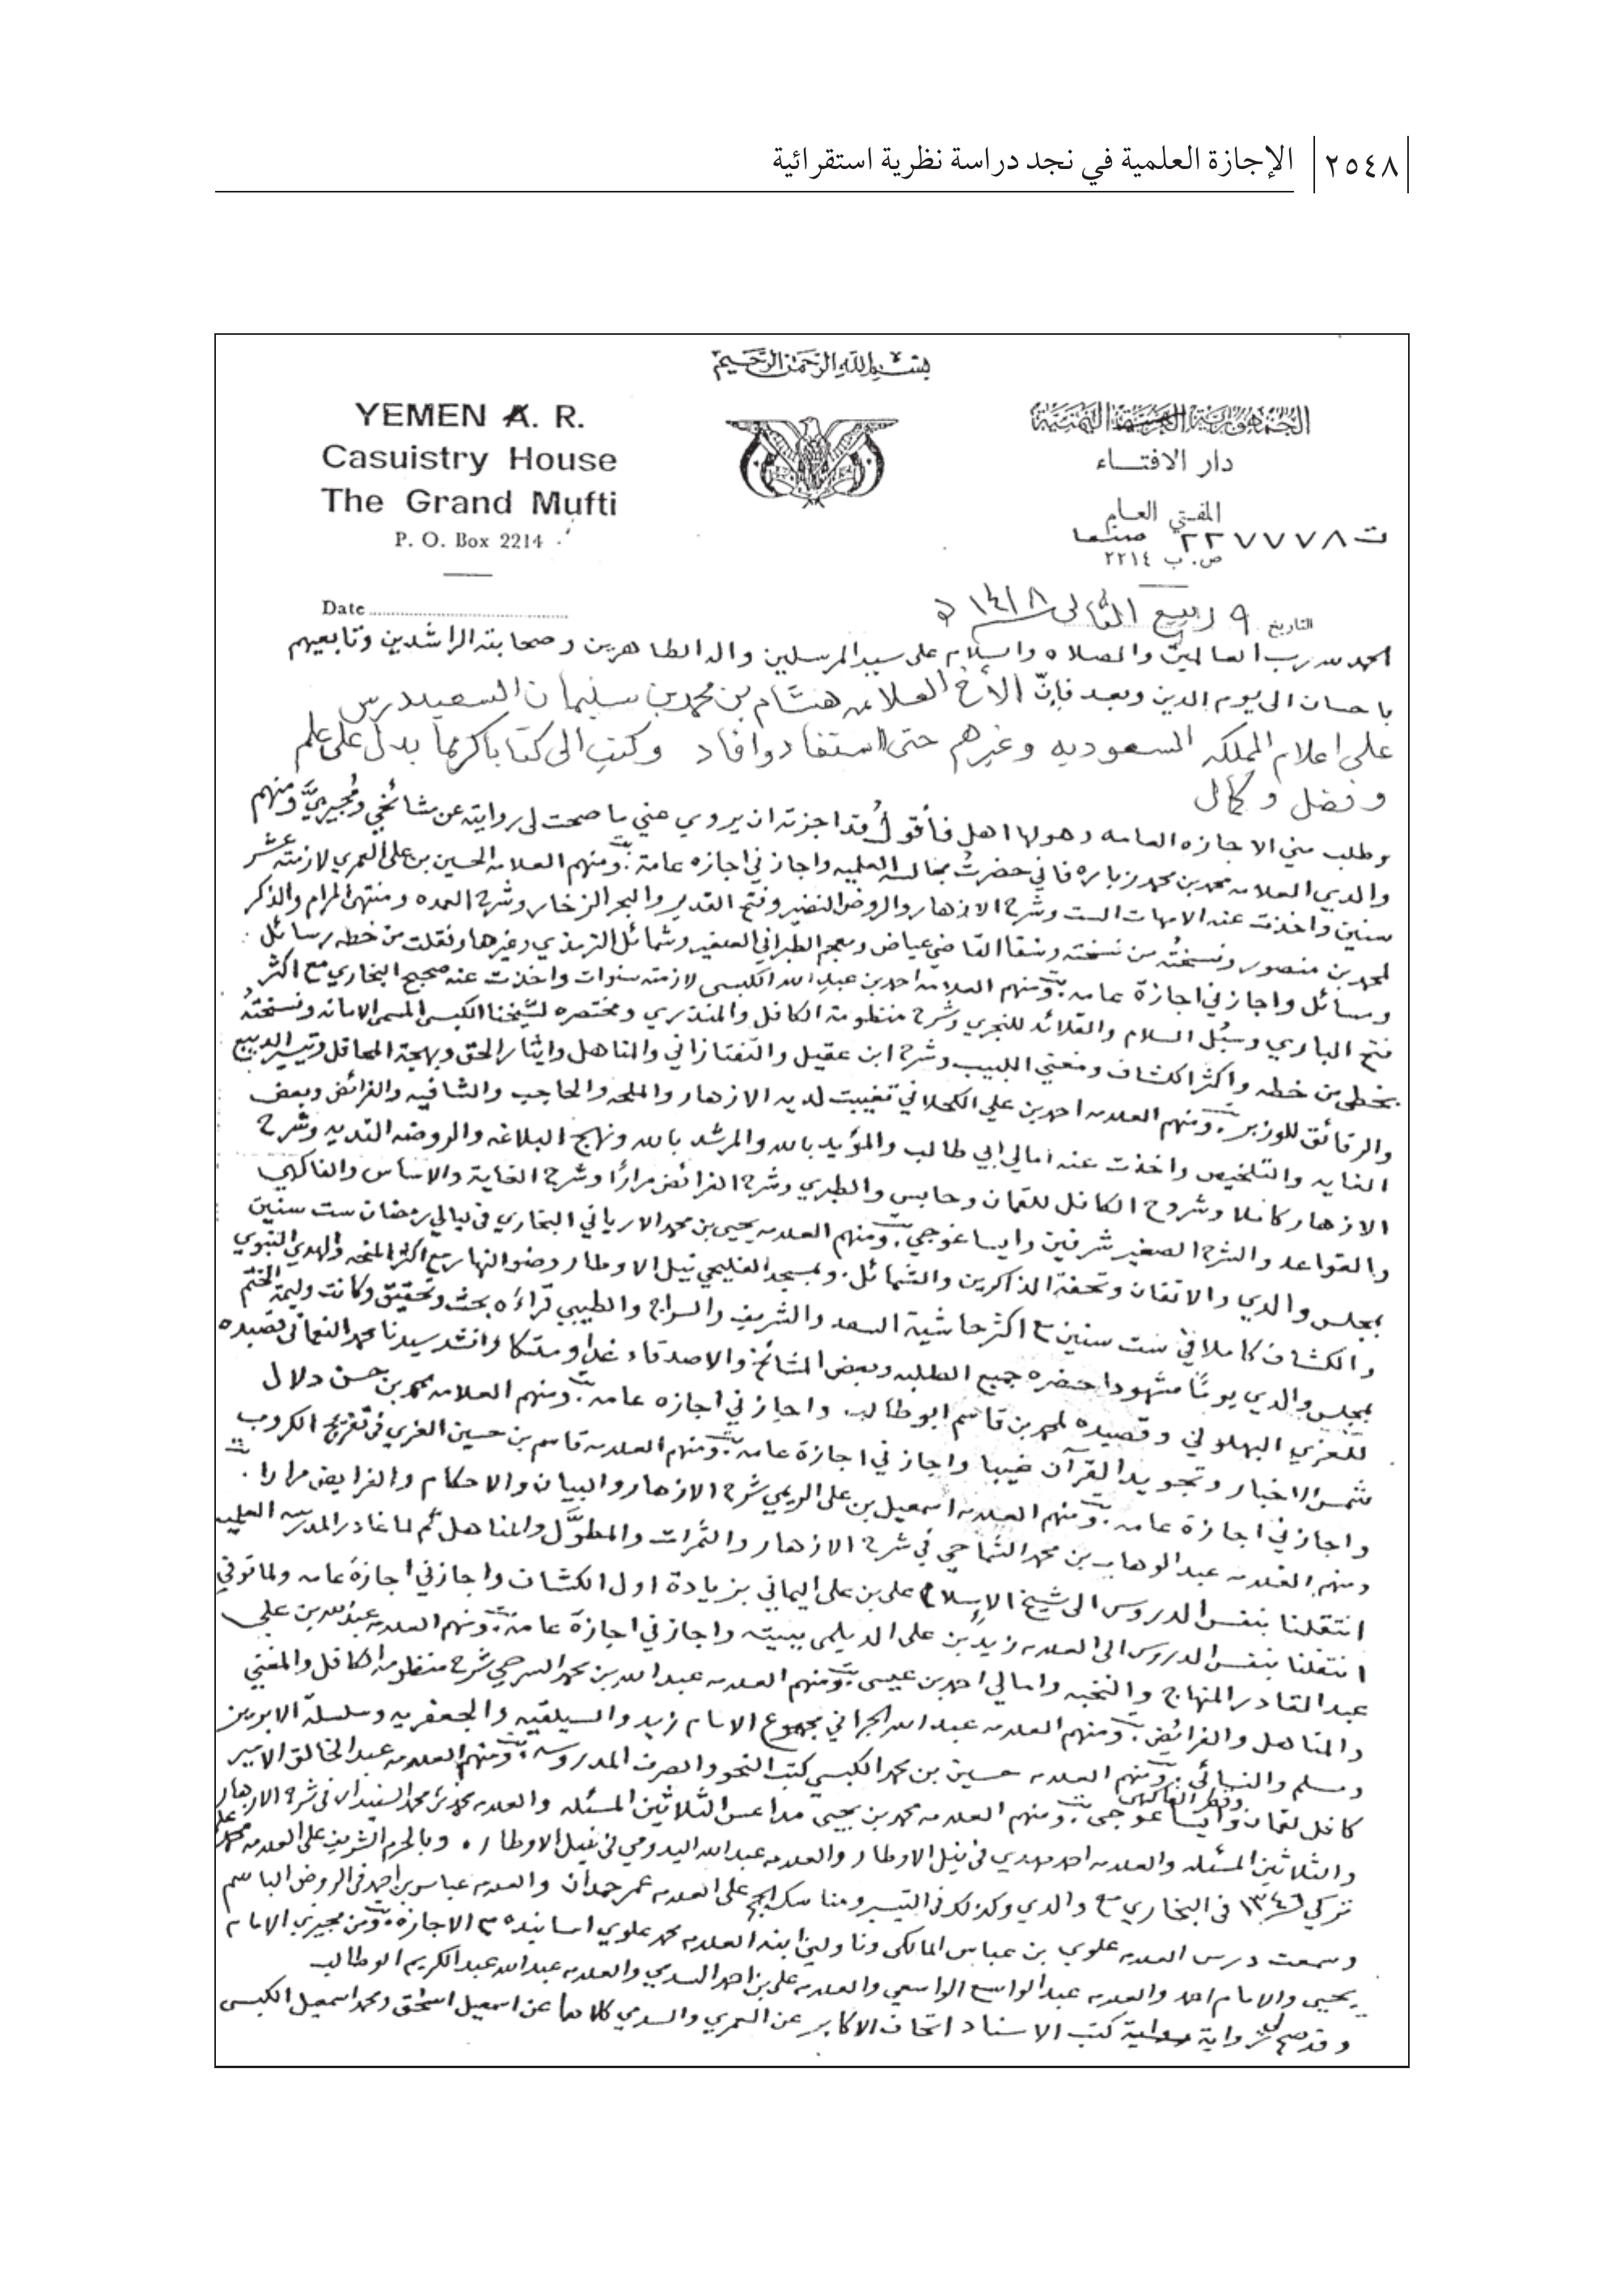 ٢٥٤٨ الإجازة العلمية في نجد دراسة نظرية استقرائية
بسم الله الرحمن الرحيم
الجمهورية العربية اليمنية
دار الافتاء
المفتي العام
ت ٢٢٧٧٧٨ صنعا
ص. ب ٢٢١٤
YEMEN A. R.
Casuistry House
The Grand Mufti
P. O. Box 2214
Date
التاريخ ٩ ربيع الثاني ١٤١٨ ه
الحمد لله رب العالمين والصلاه والسلام على سيد المرسلين واله الطاهرين وصحابته الراشدين وتابعيهم
باحسان الى يوم الدين وبعد فإنّ الأخ العلامه هشام بن محمد بن سليمان السعيد درس
على اعلام المملكه السعوديه وغيرهم حتى استفاد وافاد وكتب الى كتابا كريما يدل على علم
وفضل وكمال
وطلب مني الاجازه العامه وهو لها اهل فأقول قد اجزته ان يروي عني ما صحت لي روايته عن مشائخي ومجيزيّ ومنهم
والدي العلامه محمد بن محمد زباره فاني حضرت مجالسه العلميه واجازني اجازه عامة ومنهم العلامه الحسين بن علي العمري لازمته عشر
سنين واخذت عنه الامهات الست وشرح الازهار والروض النضير وفتح القدير والبحر الزخار وشرح العمده ومنتهى المرام والذكر
لمحمد بن منصور ونسخته من نسخته وشفا القاضي عياض ومعجم الطبراني الصغير وشمائل الترمذي وغيرها ونقلت من خطه رسائل
ومسائل واجازني اجازة عامه ومنهم العلامه احمد بن عبد الله الكبسي لازمته سنوات واخذت عنه صحيح البخاري مع اكثر
فتح الباري وسبُل السلام والقلائد للنجري وشرح منظومة الكافل والمنذري ومختصره لشيخنا الكبسي المسمى الامانه ونسختهُ
بخطي من خطه واكثر الكشاف ومغني اللبيب وشرح ابن عقيل والتفتازاني والمناهل وايثار الحق وبهجة المحافل وتيسير الديبع
والرقائق للوزير ومنهم العلامه احمد بن علي الكحلاني تغيبت لديه الازهار والملحه والحاجب والشافيه والفرائض وبعض
الغايه والتلخيص واخذت عنه امالي ابي طالب والمؤيد بالله والمرشد بالله ونهج البلاغه والروضه النديه وشرح
الازهار كاملا وشروح الكافل للقمان وحابس والطبري وشرح الفرائض مرارًا وشرح الغاية والاساس والفاكهي
والقواعد والشرح الصغير شرفين وايساغوجي ومنهم العلامه يحيى بن محمد الارياني البخاري في ليالي رمضان ست سنين
بمجلس والدي والاتقان وتحفة الذاكرين والشمائل. وبمسجد الفليحي نيل الاوطار وضو النهار مع اكثر المنحه والهدي النبوي
والكشاف كاملا في ست سنين مع اكثر حاشية السعد والشريف والسراج والطيبي قراءه بحث وتحقيق وكانت وليمة الختم
بمجلس والدي يومًا مشهودا حضره جميع الطلبه وبعض المشائخ والاصدقاء غداء ومتكاء وانشد سيدنا محمد النعماني قصيده
للعزي البهلولي وقصيده لمحمد بن قاسم ابو طالب واجازني اجازه عامه ومنهم العلامه محمد بن حسن دلال
شمس الاخبار وتجويد القرآن غيبا واجازني اجازة عامه ومنهم العلامه قاسم بن حسين العزي في تفريج الكروب
واجازني اجازة عامه ومنهم العلامه اسمعيل بن علي الريمي شرح الازهار والبيان والاحكام والفرايض مرارا
ومنهم العلامه عبد الوهاب بن محمد الشماحي في شرح الازهار والثمرات والمطوّل والمناهل ثم لما غادر المدرسه العلميه
انتقلنا بنفس الدروس الى شيخ الإسلام علي بن علي اليماني بزيادة اول الكشاف واجازني اجازة عامه ولما توفي
انتقلنا بنفس الدروس الى العلامه زيد بن علي الديلمي ببيته واجازني اجازة عامه ومنهم العلامه عبد الله بن علي
عبد القادر المنهاج والنخبه وامالي احمد بن عيسى ومنهم العلامه عبد الله بن محمد السرحي شرح منظومه الكافل والمغني
والمناهل والفرائض ومنهم العلامه عبد الله الجرافي مجموع الامام زيد والسيلقيه والجعفريه وسلسلة الابريز
ومسلم والنسائي ومنهم العلامه حسين بن محمد الكبسي كتب النحو والصرف المدروسه ومنهم العلامه عبد الخالق الامير
كافل لقمان وايساغوجي وقطر الفاكهي ومنهم العلامه محمد بن يحيى مداعس الثلاثين المسئله والعلامه محمد السنيدار في شرح الازهار
والثلاثين المسئله والعلامه احمد مهدي في نيل الاوطار والعلامه عبد الله اليدومي في نيل الاوطار. وبالحرم الشريف على العلامه محمد علي
تركي ١٣٤٦ في البخاري مع والدي وكذلك في التيسير ومناسك الحج على العلامه عمر حمدان والعلامه عباس بن احمد في الروض الباسم
وسمعت درس العلامه علوي بن عباس المالكي وناولني ابنه العلامه محمد علوي اسانيده مع الاجازه ومن مجيزي الامام
يحيى والامام احمد والعلامه عبد الواسع الواسعي والعلامه علي بن احمد السدمي والعلامه عبد الله عبد الكريم ابو طالب
وقد صح لي رواية كتب الاسناد اتحاف الاكابر عن العمري والسدمي كلاهما عن اسمعيل اسحق ومحمد اسمعيل الكبسي